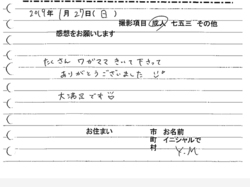 2019年 1月27日(日)
撮影項目 成人 七五三 その他
感想をお願いします
たくさん ワガママ きいて下さって
ありがとうございました
大満足です
お住まい 市 お名前
町 イニシャルで
村 Y.M